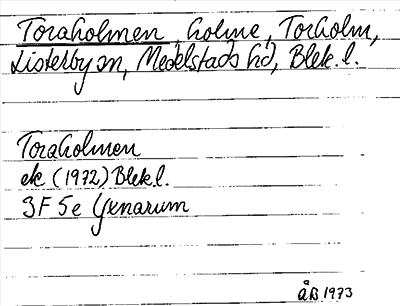 Toraholmen, holme, Torholm,
Listerby sn, Medelstads hd, Blek. l.
Toraholmen
ek (1972) Blek l.
3F 5e Gxnarum
ÅB 1973